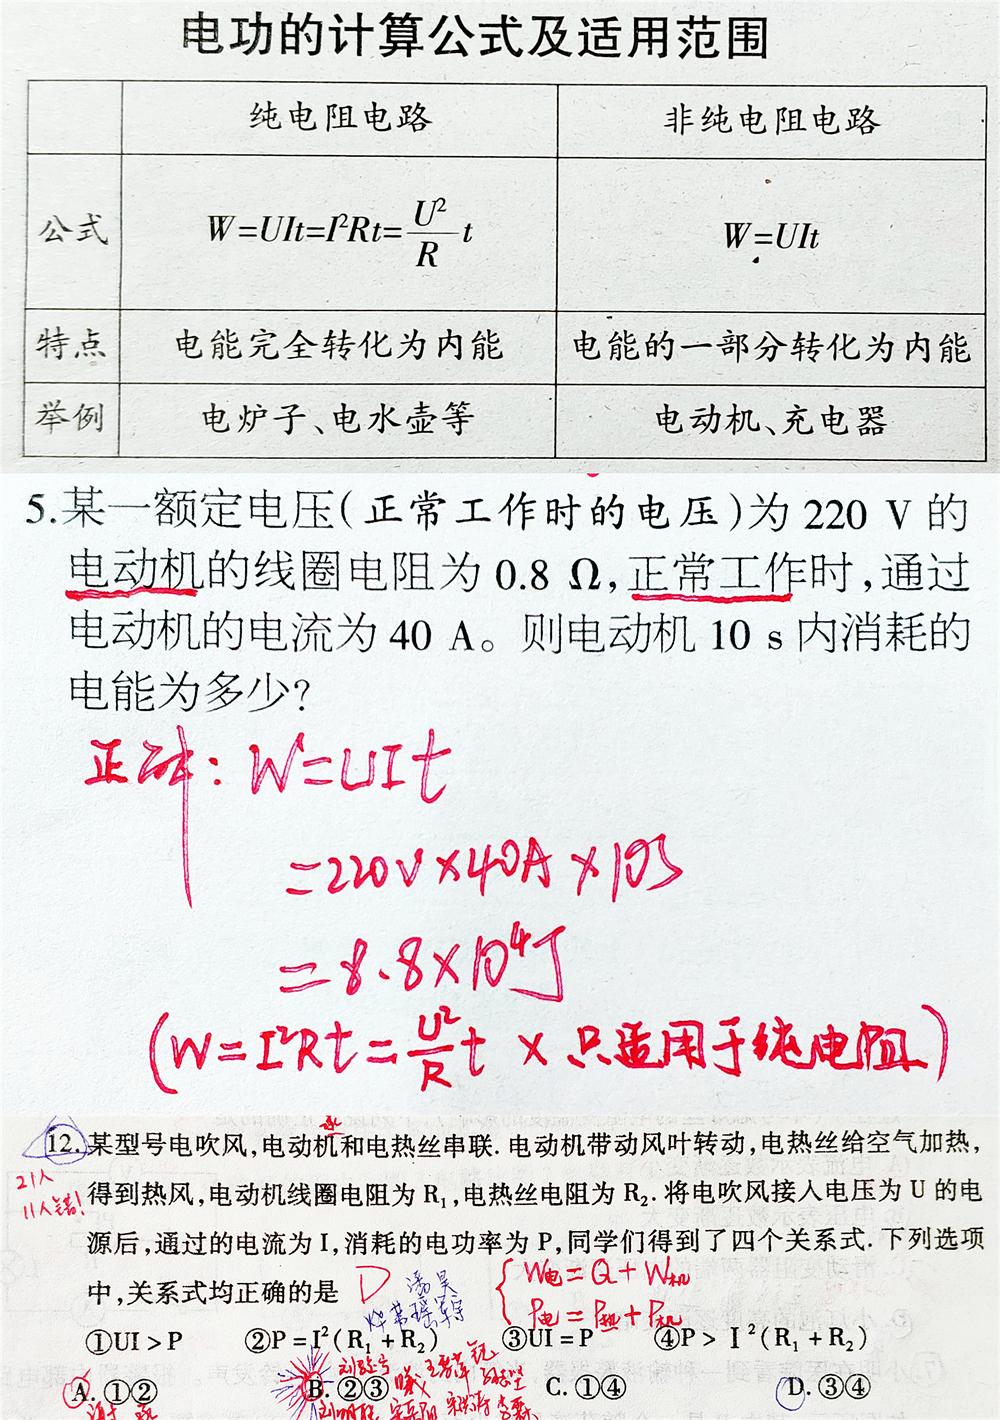 电功的计算公式及适用范围
纯电阻电路 非纯电阻电路
公式 W=UIt=I²Rt=U²/R t W=UIt
特点 电能完全转化为内能 电能的一部分转化为内能
举例 电炉子、电水壶等 电动机、充电器
5.某一额定电压(正常工作时的电压)为 220 V 的
电动机的线圈电阻为 0.8 Ω,正常工作时,通过
电动机的电流为 40 A。则电动机 10 s 内消耗的
电能为多少?
正确: W=UIt
=220V×40A×10s
=8.8×10⁴J
(W=I²Rt=U²/R t × 只适用于纯电阻)
12.某型号电吹风,电动机和电热丝串联.电动机带动风叶转动,电热丝给空气加热,
21人
得到热风,电动机线圈电阻为 R₁,电热丝电阻为 R₂.将电吹风接入电压为 U 的电
11人错!
源后,通过的电流为 I,消耗的电功率为 P,同学们得到了四个关系式.下列选项
中,关系式均正确的是 D
W电=Q+W机
P电=P热+P机
①UI > P ②P=I²(R₁+R₂) ③UI=P ④P> I²(R₁+R₂)
A. ①② B. ②③ C. ①④ D. ③④